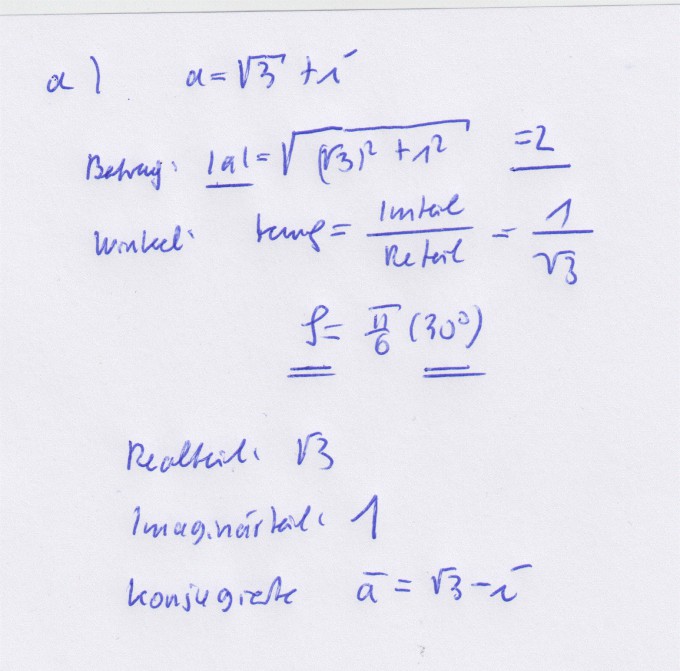 a) a = √3 + i
Betrag: |a| = √((√3)² + 1²) = 2
Winkel: tan φ = Imteil / Reteil = 1 / √3
φ = π/6 (30°)
Realteil: √3
Imaginärteil: 1
Konjugierte a̅ = √3 - i